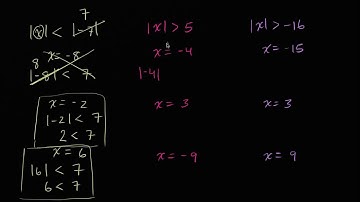 7
|x| < |-7|
x = -8
8
|-8| < 7
x = -2
|-2| < 7
2 < 7
x = 6
|6| < 7
6 < 7
|x| > 5
x = -4
|-4|
x = 3
x = -9
|x| > -16
x = -15
x = 3
x = 9